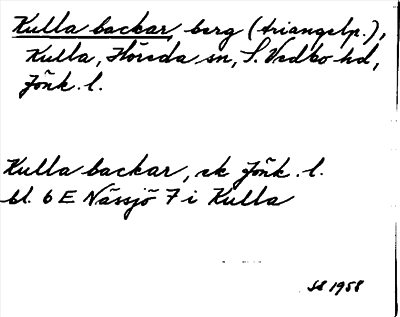 Kulla backar, berg (triangelp.),
Kulla, Höreda sn, S. Vedbo hd,
Jönk. l.
Kulla backar, ek Jönk. l.
bl. 6 E Nässjö 7 i Kulla
SB 1958